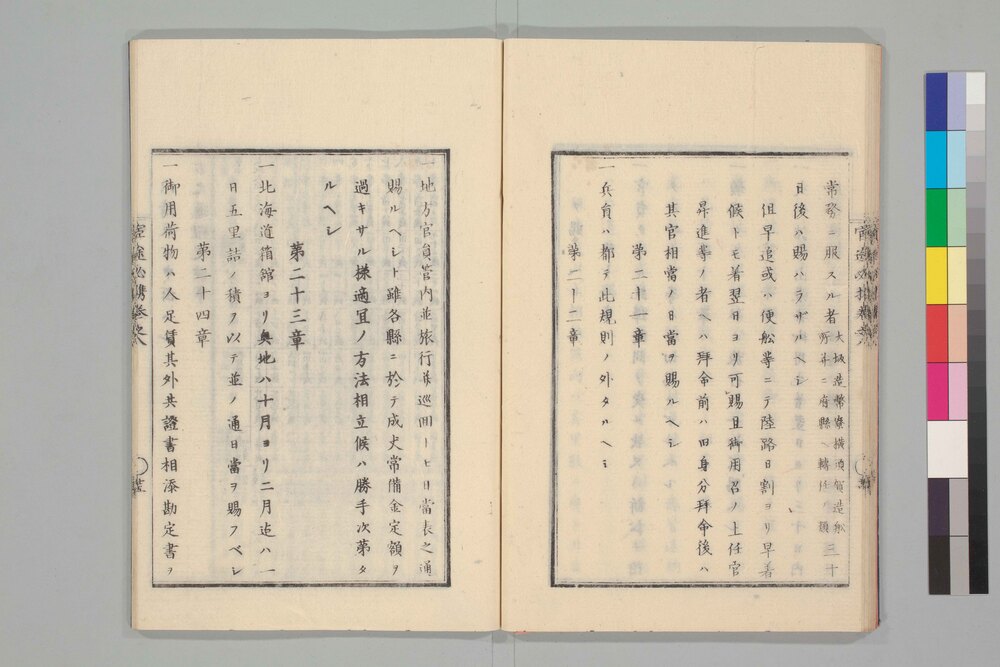 常務ニ服スル者大坂造幣寮横須賀造船所并ニ府縣ヘ轉任ノ類三十
日後ハ賜ハラザルヘシ
但早追或ハ便船等ニテ陸路日割ヨリ早着
候トモ着翌日ヨリ可賜且御用召ノ上任官
昇進等ノ者ヘハ拜命前ハ旧身分拜命後ハ
其官相當ノ日當ヲ賜ルヘシ
第二十一章
一兵員ハ都テ此規則ノ外タルヘシ
第二十二章
一地方官員管内並旅行并巡回トモ日當表之通
賜ルヘシト雖各縣ニ於テ成丈常備金定額ヲ
過キサル様適宜ノ方法相立候ハ勝手次第タ
ルヘシ
第二十三章
一北海道箱館ヨリ奥地ハ十月ヨリ二月迠ハ一
日五里詰ノ積ヲ以テ並ノ通日當ヲ賜フベシ
第二十四章
一御用荷物ハ人足賃其外共證書相添勘定書ヲ